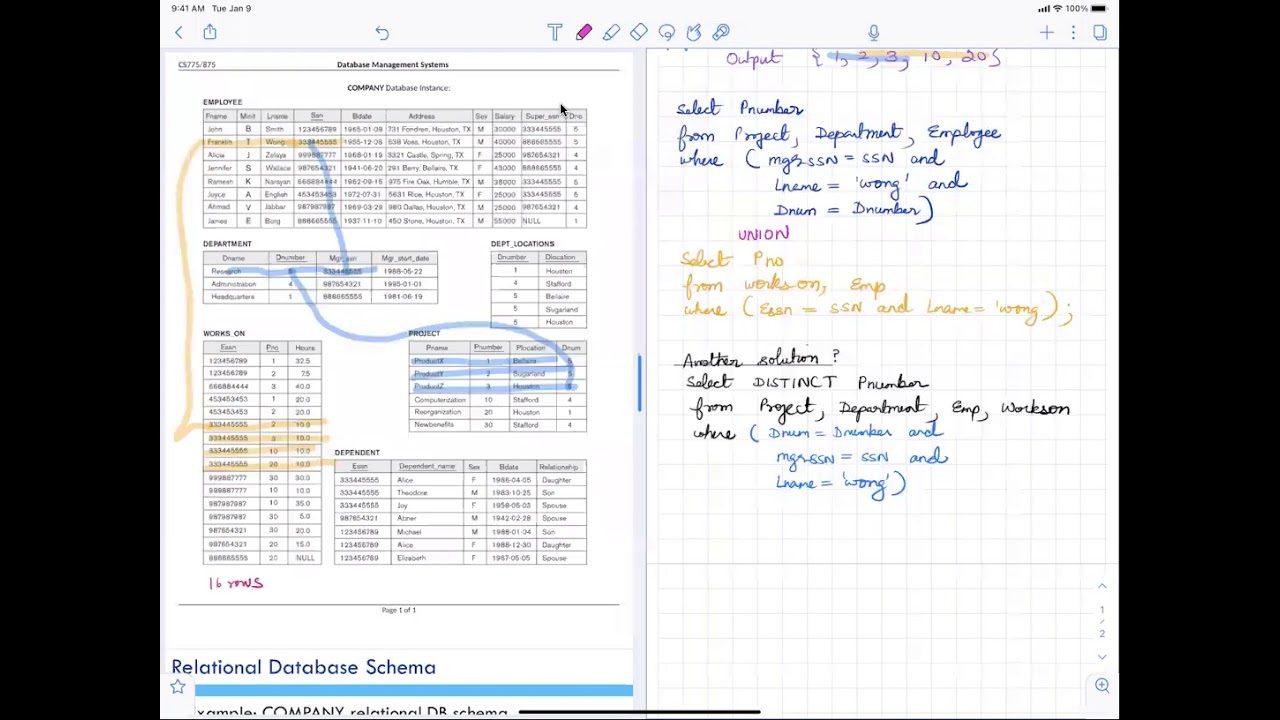 9:41 AM Tue Jan 9
100%
CS775/875 Database Management Systems
COMPANY Database Instance:
EMPLOYEE
Fname Minit Lname Ssn Bdate Address Sex Salary Super_ssn Dno
John B Smith 123456789 1965-01-09 731 Fondren, Houston, TX M 30000 333445555 5
Franklin T Wong 333445555 1955-12-08 638 Voss, Houston, TX M 40000 888665555 5
Alicia J Zelaya 999887777 1968-01-19 3321 Castle, Spring, TX F 25000 987654321 4
Jennifer S Wallace 987654321 1941-06-20 291 Berry, Bellaire, TX F 43000 888665555 4
Ramesh K Narayan 666884444 1962-09-15 975 Fire Oak, Humble, TX M 38000 333445555 5
Joyce A English 453453453 1972-07-31 5631 Rice, Houston, TX F 25000 333445555 5
Ahmad V Jabbar 987987987 1969-03-29 980 Dallas, Houston, TX M 25000 987654321 4
James E Borg 888665555 1937-11-10 450 Stone, Houston, TX M 55000 NULL 1
DEPARTMENT
Dname Dnumber Mgr_ssn Mgr_start_date
Research 5 333445555 1988-05-22
Administration 4 987654321 1995-01-01
Headquarters 1 888665555 1981-06-19
DEPT_LOCATIONS
Dnumber Dlocation
1 Houston
4 Stafford
5 Bellaire
5 Sugarland
5 Houston
WORKS_ON
Essn Pno Hours
123456789 1 32.5
123456789 2 7.5
666884444 3 40.0
453453453 1 20.0
453453453 2 20.0
333445555 2 10.0
333445555 3 10.0
333445555 10 10.0
333445555 20 10.0
999887777 30 30.0
999887777 10 10.0
987987987 10 35.0
987987987 30 5.0
987654321 30 20.0
987654321 20 15.0
888665555 20 NULL
16 rows
PROJECT
Pname Pnumber Plocation Dnum
ProductX 1 Bellaire 5
ProductY 2 Sugarland 5
ProductZ 3 Houston 5
Computerization 10 Stafford 4
Reorganization 20 Houston 1
Newbenefits 30 Stafford 4
DEPENDENT
Essn Dependent_name Sex Bdate Relationship
333445555 Alice F 1986-04-05 Daughter
333445555 Theodore M 1983-10-25 Son
333445555 Joy F 1958-05-03 Spouse
987654321 Abner M 1942-02-28 Spouse
123456789 Michael M 1988-01-04 Son
123456789 Alice F 1988-12-30 Daughter
123456789 Elizabeth F 1967-05-05 Spouse
Page 1 of 1
Relational Database Schema
xample: COMPANY relational DB schema
Output {1, 2, 3, 10, 20}
Select Pnumber
from Project, Department, Employee
where (mgrSSN = SSN and
Lname = 'wong' and
Dnum = Dnumber)
UNION
Select Pno
from works on, Emp
where (Essn = SSN and Lname = 'wong');
Another solution ?
Select DISTINCT Pnumber
from Project, Department, Emp, Workson
where (Dnum = Dnumber and
mgrSSN = SSN and
Lname = 'wong')
1
/
2